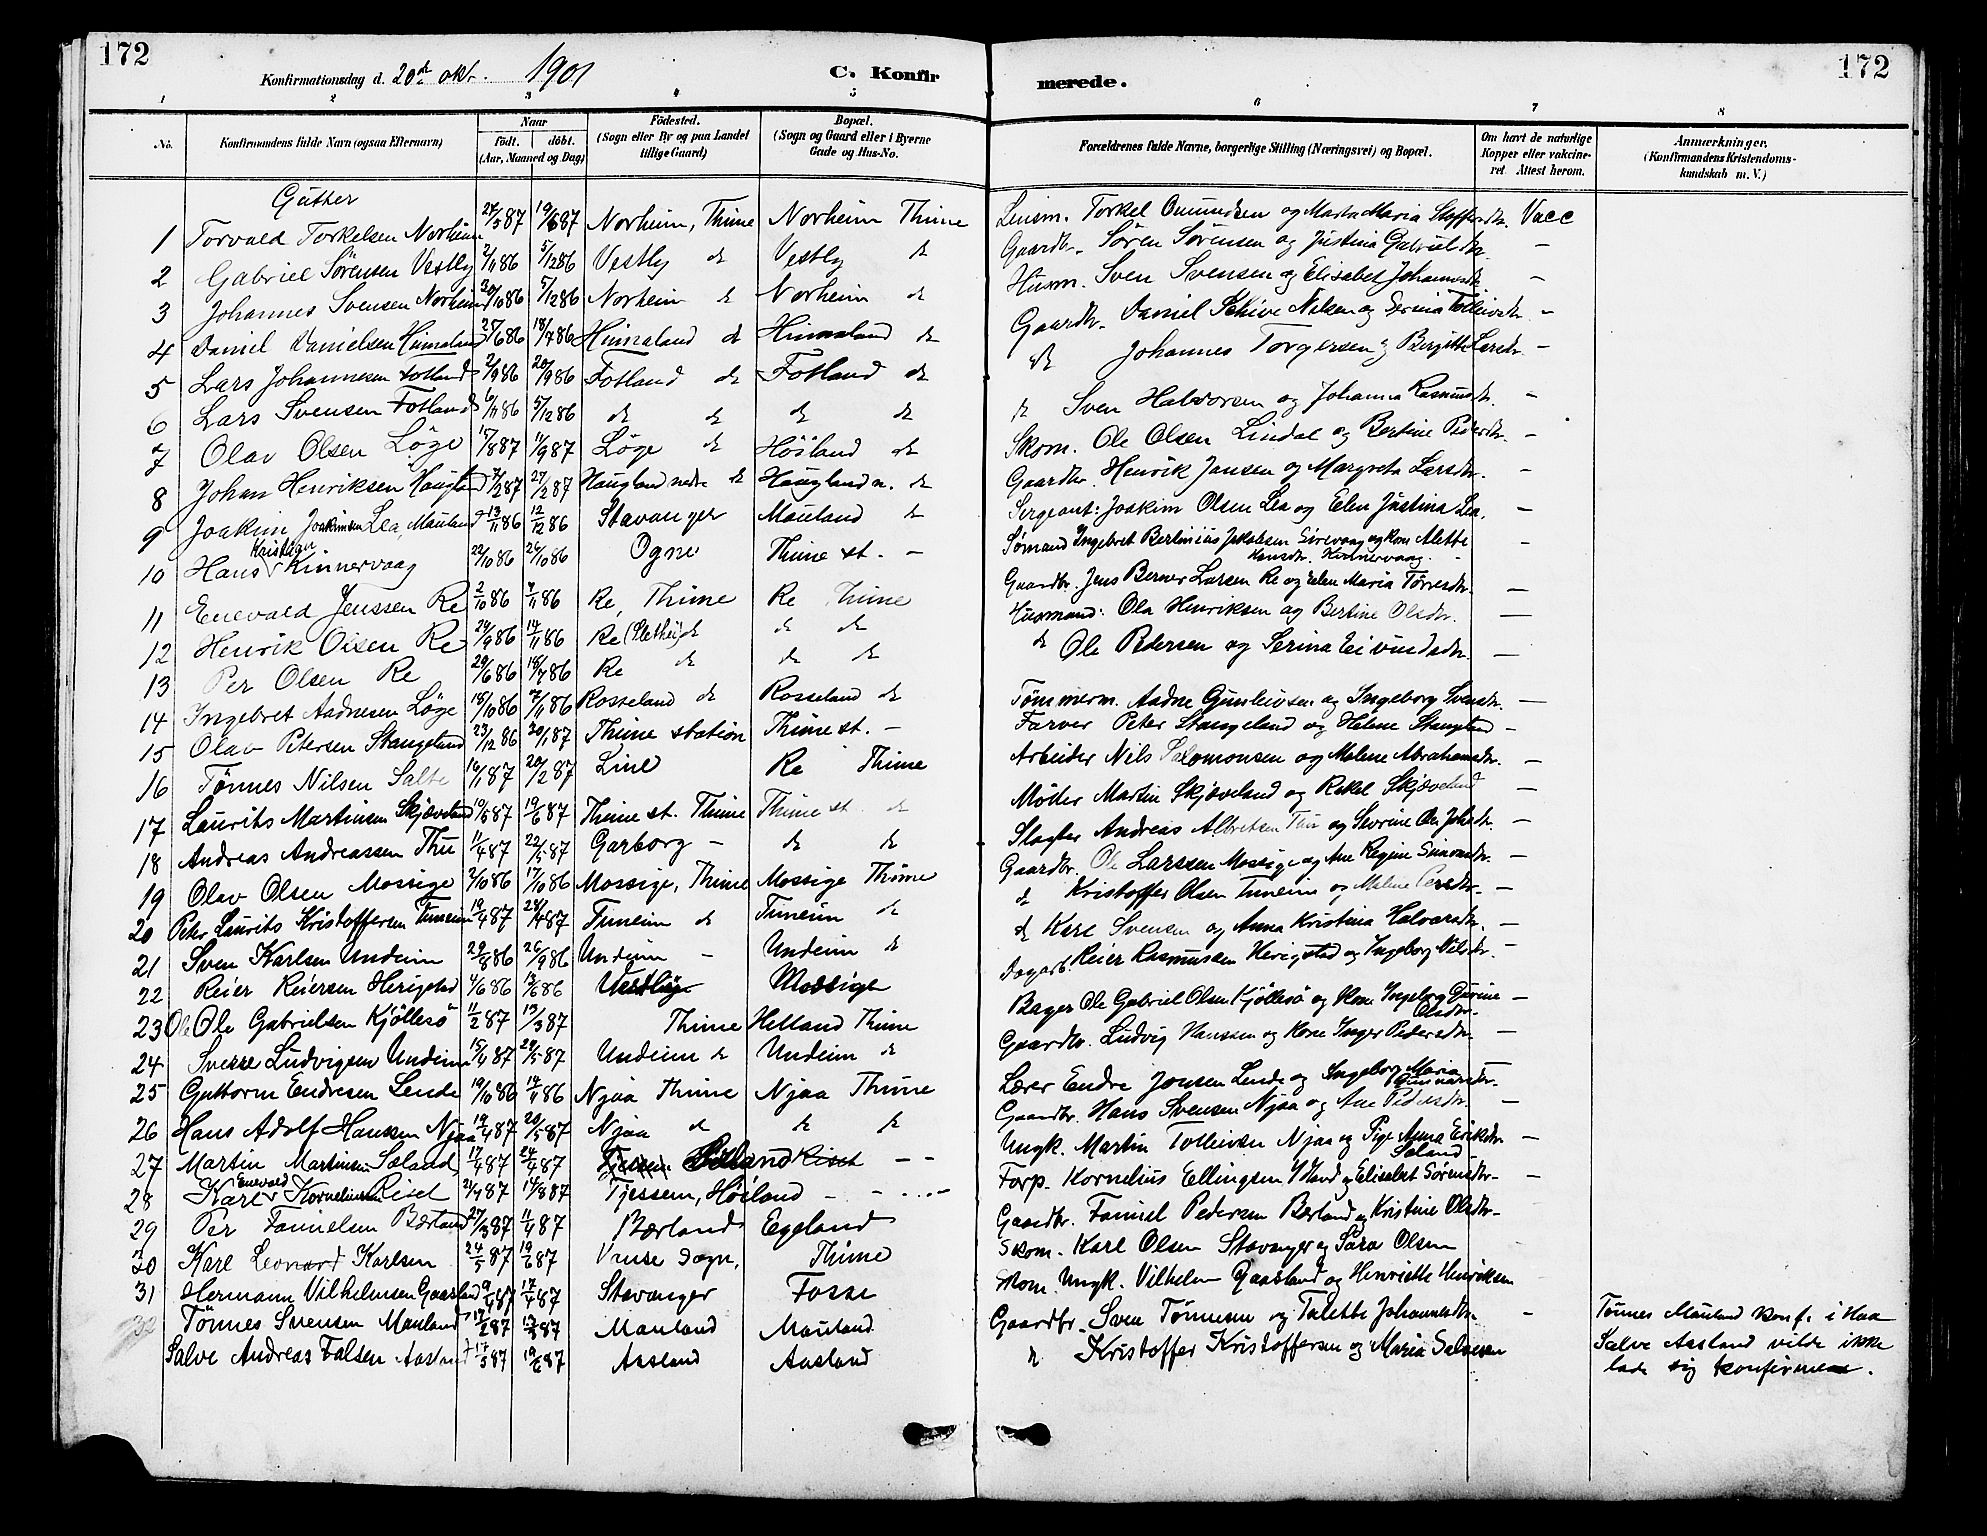 172
Konfirmationsdag d. 20de okt. 1901
C. Konfirmerede.
172
1 2 3 4 5 6 7 8
No. Konfirmandens fulde Navn (ogsaa Efternavn) Naar födt. döbt. (Aar, Maaned og Dag) Födested. (Sogn eller By og paa Landet tillige Gaard) Bopæl. (Sogn og Gaard eller i Byerne Gade og Hus-No. Forældrenes fulde Navne, borgerlige Stilling (Næringsvei) og Bopæl. Om havt de naturlige Kopper eller vakcineret. Attest herom. Anmærkninger. (Konfirmandens Kristendomskundskab m. V.)
Gutter
1 Torvald Torkelsen Norheim 24/3 87 19/6 87 Norheim, Thime Norheim Thime Lensm. Torkel Omundsen og Marta Maria Stoffersdtr. Vacc
2 Gabriel Sörensen Vestly 2/11 86 5/12 86 Vestly do Vestly do Gaardbr. Sören Sörensen og Justina Gabrielsdtr. -
3 Johannes Svensen Norheim 30/10 86 5/12 86 Norheim do Norheim do Husm. Sven Svensen og Elisabet Johannesdtr. -
4 Daniel Danielsen Himaland 25/6 86 18/7 86 Himaland do Himaland do Gaardbr. Daniel Schive Nilsen og Serina Tolleivsdtr. -
5 Lars Johannesen Fotland 2/9 86 20/9 86 Fotland do Fotland do do Johannes Torgersen og Birgitte Larsdtr. -
6 Lars Svensen Fotland 6/11 86 5/12 86 do do do do do Sven Halvorsen og Johanna Rasmusdtr. -
7 Olav Olsen Löge 17/8 87 11/9 87 Löge do Höiland do Skom. Ole Olsen Lindal og Bertine Pedersdtr. -
8 Johan Henriksen Haugland 7/2 87 27/2 87 Haugland nedre do Haugland n. do Gaardbr. Henrik Jansen og Margreta Larsdtr. -
9 Joakim Joakimsen Lea, Mauland 13/11 86 12/12 86 Stavanger Mauland do Sergeant: Joakim Olsen Lea og Elen Justina Lea. -
10 Hans Kristian Kinnervaag 22/10 86 26/10 86 Ogne Thime st. - Sømand Ingebret Berlinius Jakobsen Sirevaag og kone Mette Hansdtr. Kinnervaag. -
11 Enevald Jenssen Re 2/10 86 7/11 86 Re, Thime Re Thime Gaardbr. Jens Berner Larsen Re og Elen Maria Tørresdtr. -
12 Henrik Olsen Re 24/9 86 14/11 86 Re (Slethei) do do do Husmand: Ola Henriksen og Bertine Olsdtr. -
13 Per Olsen Re 29/6 86 18/7 86 Re do do do do Ole Pedersen og Serina Eivindsdtr. -
14 Ingebret Aadnesen Löge 18/10 86 7/11 86 Rosseland do Rosseland do Tømmerm. Aadne Gunleivsen og Ingeborg Svensdtr. -
15 Olav Petersen Stangeland 23/12 86 30/1 87 Thime station Thime st. - Farver Peter Stangeland og Helene Stangeland -
16 Tønnes Nilsen Salte 16/1 87 20/2 87 Line Re Thime Arbeider Nils Salomonsen og Malene Abrahamsdtr. -
17 Laurits Martinsen Skjæveland 10/5 87 19/6 87 Thime st. Thime Thime st. do Møller Martin Skjæveland og Rakel Skjæveland -
18 Andreas Andreassen Thu 11/4 87 22/5 87 Garborg - do do Slagter Andreas Albretsen Thu og Severine Johsdtr. -
19 Olav Olsen Mossige 2/10 86 17/10 86 Mossige, Thime Mossige Thime Gaardbr. Ole Larssen Mossige og Ane Regine Gunvarsdtr. -
20 Peter Laurits Kristoffersen Tuneim 19/4 87 24/4 87 Tuneim do Tuneim do do Kristoffer Olsen Tuneim og Malene Persdtr. -
21 Sven Karlsen Undeim 29/8 86 26/9 86 Undeim - Undeim do do Karl Svensen og Anna Kristina Halvorsdtr. -
22 Reier Reiersen Herigstad 4/6 86 13/6 86 Mossige Dagarb. Reier Rasmussen Herigstad og Ingeborg Nilsdtr. -
23 Ole Gabrielsen Kjöllesö 11/2 87 13/3 87 Thime Helland Thime Bager Ole Gabriel Olsen Kjöllesö og Kone Ingeborg Gurine Olsdtr. -
24 Sverre Ludvigsen Undeim 15/4 87 29/5 87 Undeim do Undeim do Gaardbr. Ludvig Hanssen og Kone Inger Pedersdtr. -
25 Guttorm Endresen Lende 19/10 86 14/11 86 Njaa Thime Njaa Thime Lærer Endre Jonsen Lende og Ingeborg Maria Gunvarsdtr. -
26 Hans Adolf Hanssen Njaa 19/4 87 20/5 87 Njaa do do do Gaardbr. Hans Svensen Njaa og Ane Pedersdtr. -
27 Martin Martinsen Saland 17/4 87 24/4 87 - - Ungk. Martin Tolleivsen Njaa og Pige Anna Eriksdtr. Saland -
28 Karl Enevald Korneliussen Riset 21/4 87 14/8 87 Tjessem, Höiland - - Forp. Kornelius Ellingsen og Elisabet Sörensdtr. -
29 Per Tønnelsen Bærland 27/3 87 11/4 87 Bærland Egeland Gaardbr. Pedersen Bærland og Kristine Olsdtr. -
30 Karl Leonard Karlsen 24/5 87 19/6 87 Vanse Sogn, Thime Skom. Karl Olsen Stavanger og Sara Olsen
31 Hermann Vilhelmsen Gaasland 9/4 87 17/4 87 Stavanger Fosse Skom. Ungk. Vilhelm Gaasland og Henriette Henriksen
32 Tönnes Svensen Mauland 19/2 87 13/3 87 Mauland Mauland Gaardbr. Sven Tönnesen og Talette Johannesdtr. - Tönnes Mauland konf. i Haa
Salve Andreas Falsen Aasland 17/5 87 19/6 87 Aasland Aasland do Kristoffer Kristoffersen og Maria Salvesen Salve Aasland vilde ikke
lade sig konfirmere.